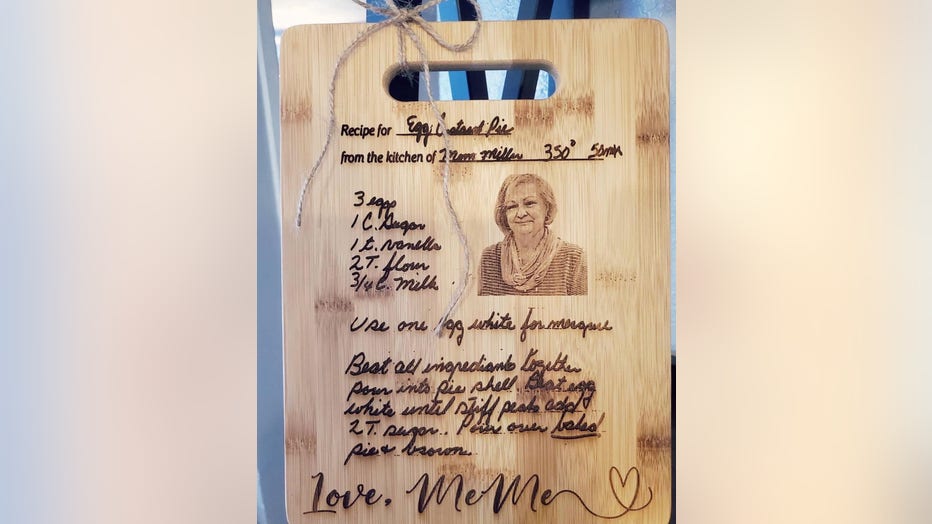 Recipe for Egg Custard Pie
from the kitchen of Mom Miller 350° 50mn
3 eggs
1 C. Sugar
1 t. vanella
2 T. flour
3/4 C. Milk
Use one egg white for merque
Beat all ingrediants together
pour into pie shell. Beat egg
white until stiff peaks add
2 T. sugar. Pour over baked
pie & brown.
Love, MeMe